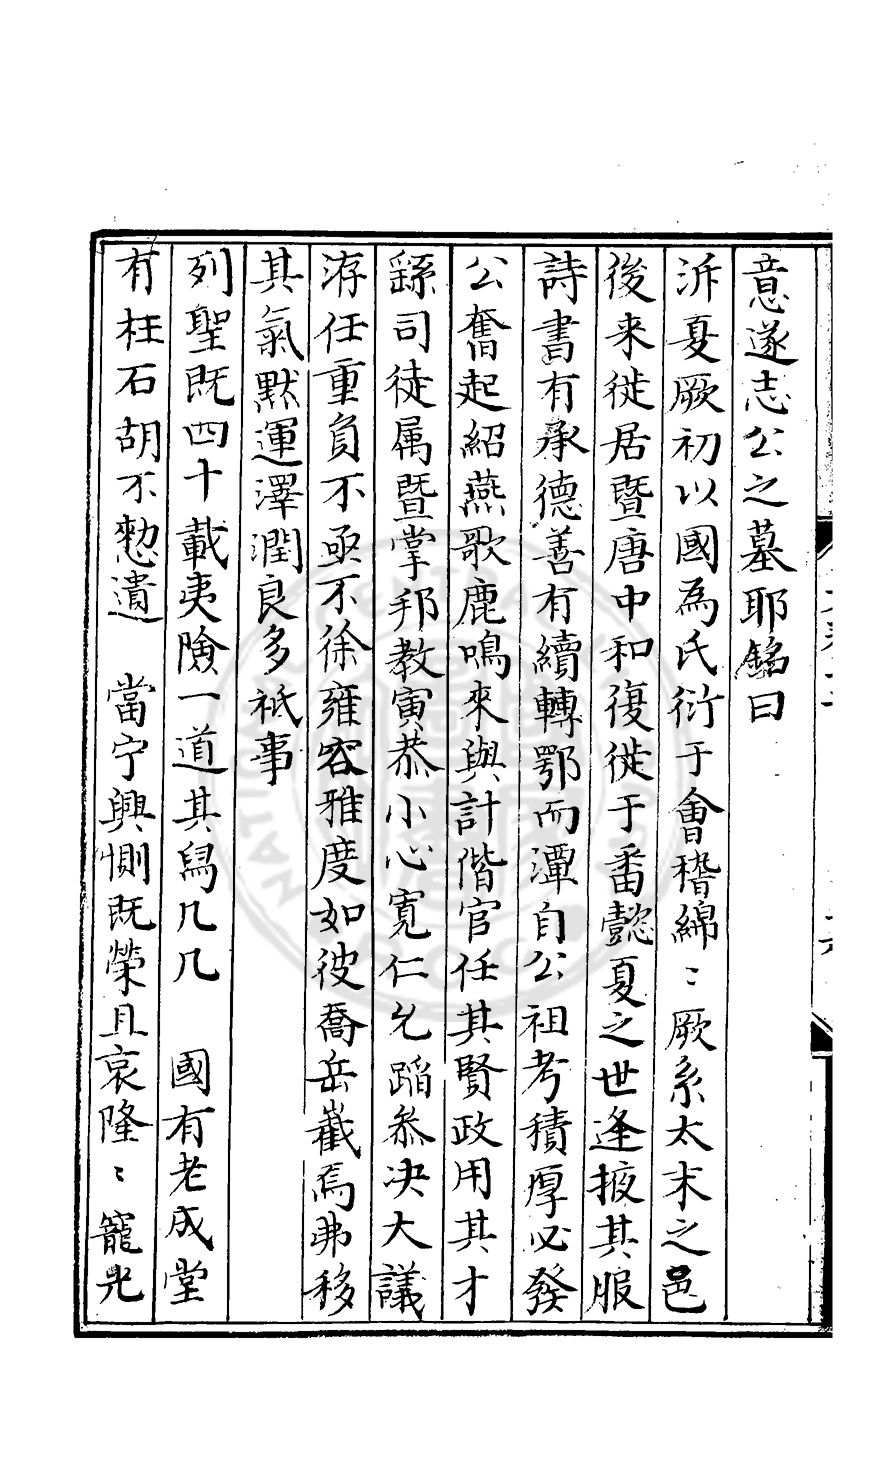 意遂志公之墓耶銘曰
泝夏厥初以國為氏衍于會稽綿〻厥系太末之邑
後来徙居暨唐中和復徙于番懿夏之世逢掖其服
詩書有承德善有續轉鄂而潭自公祖考積厚必發
公奮起紹燕歌鹿鳴来與計偕官任其賢政用其才
繇司徒属暨掌邦教寅恭小心寬仁允蹈叅决大議
洊任重負不亟不徐雍容雅度如彼喬岳巀焉弗移
其氣默運澤潤良多祇事
列聖既四十載夷險一道其舄几几　國有老成堂
有柱石胡不憗遺　當宁興惻既榮且哀隆〻寵光